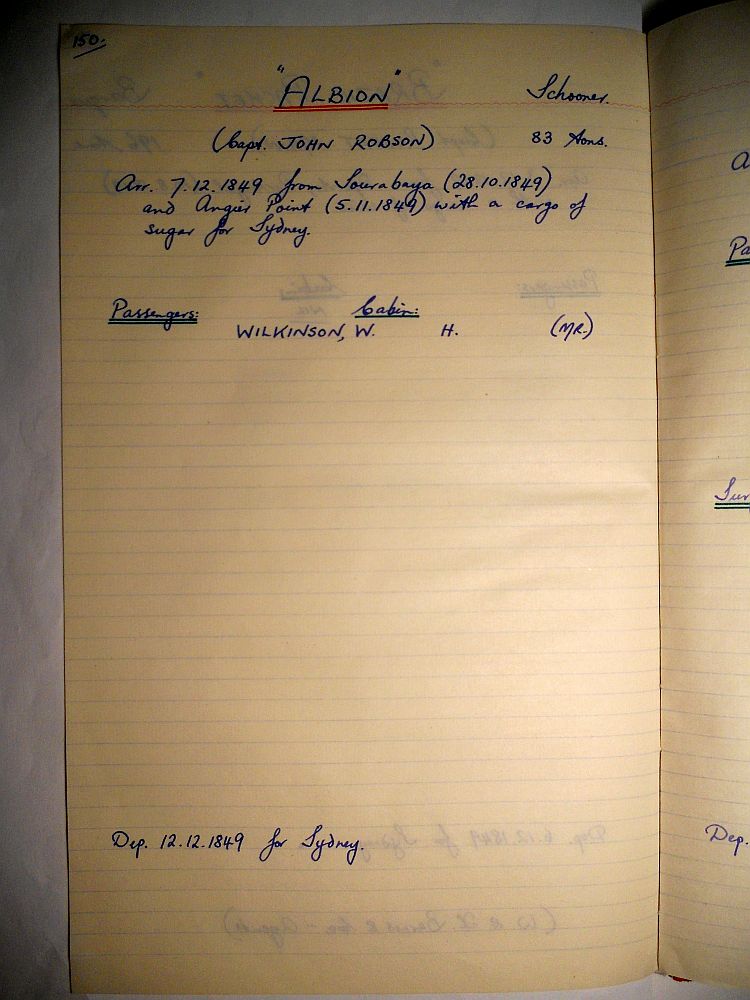 150.
"ALBION" Schooner.
(Capt. JOHN ROBSON) 83 tons.
Arr. 7.12.1849 from Sourabaya (28.10.1849)
and Angier Point (5.11.1849) with a cargo of
sugar for Sydney.
Passengers: Cabin:
WILKINSON, W. H. (MR.)
Dep. 12.12.1849 for Sydney.
Dep.